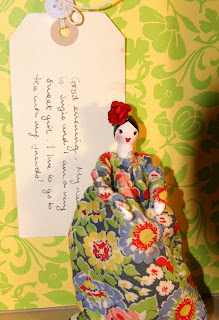 Good evening. My name
is Suzie and I am a very
sweet girl. I love to go to
tea with my friends!